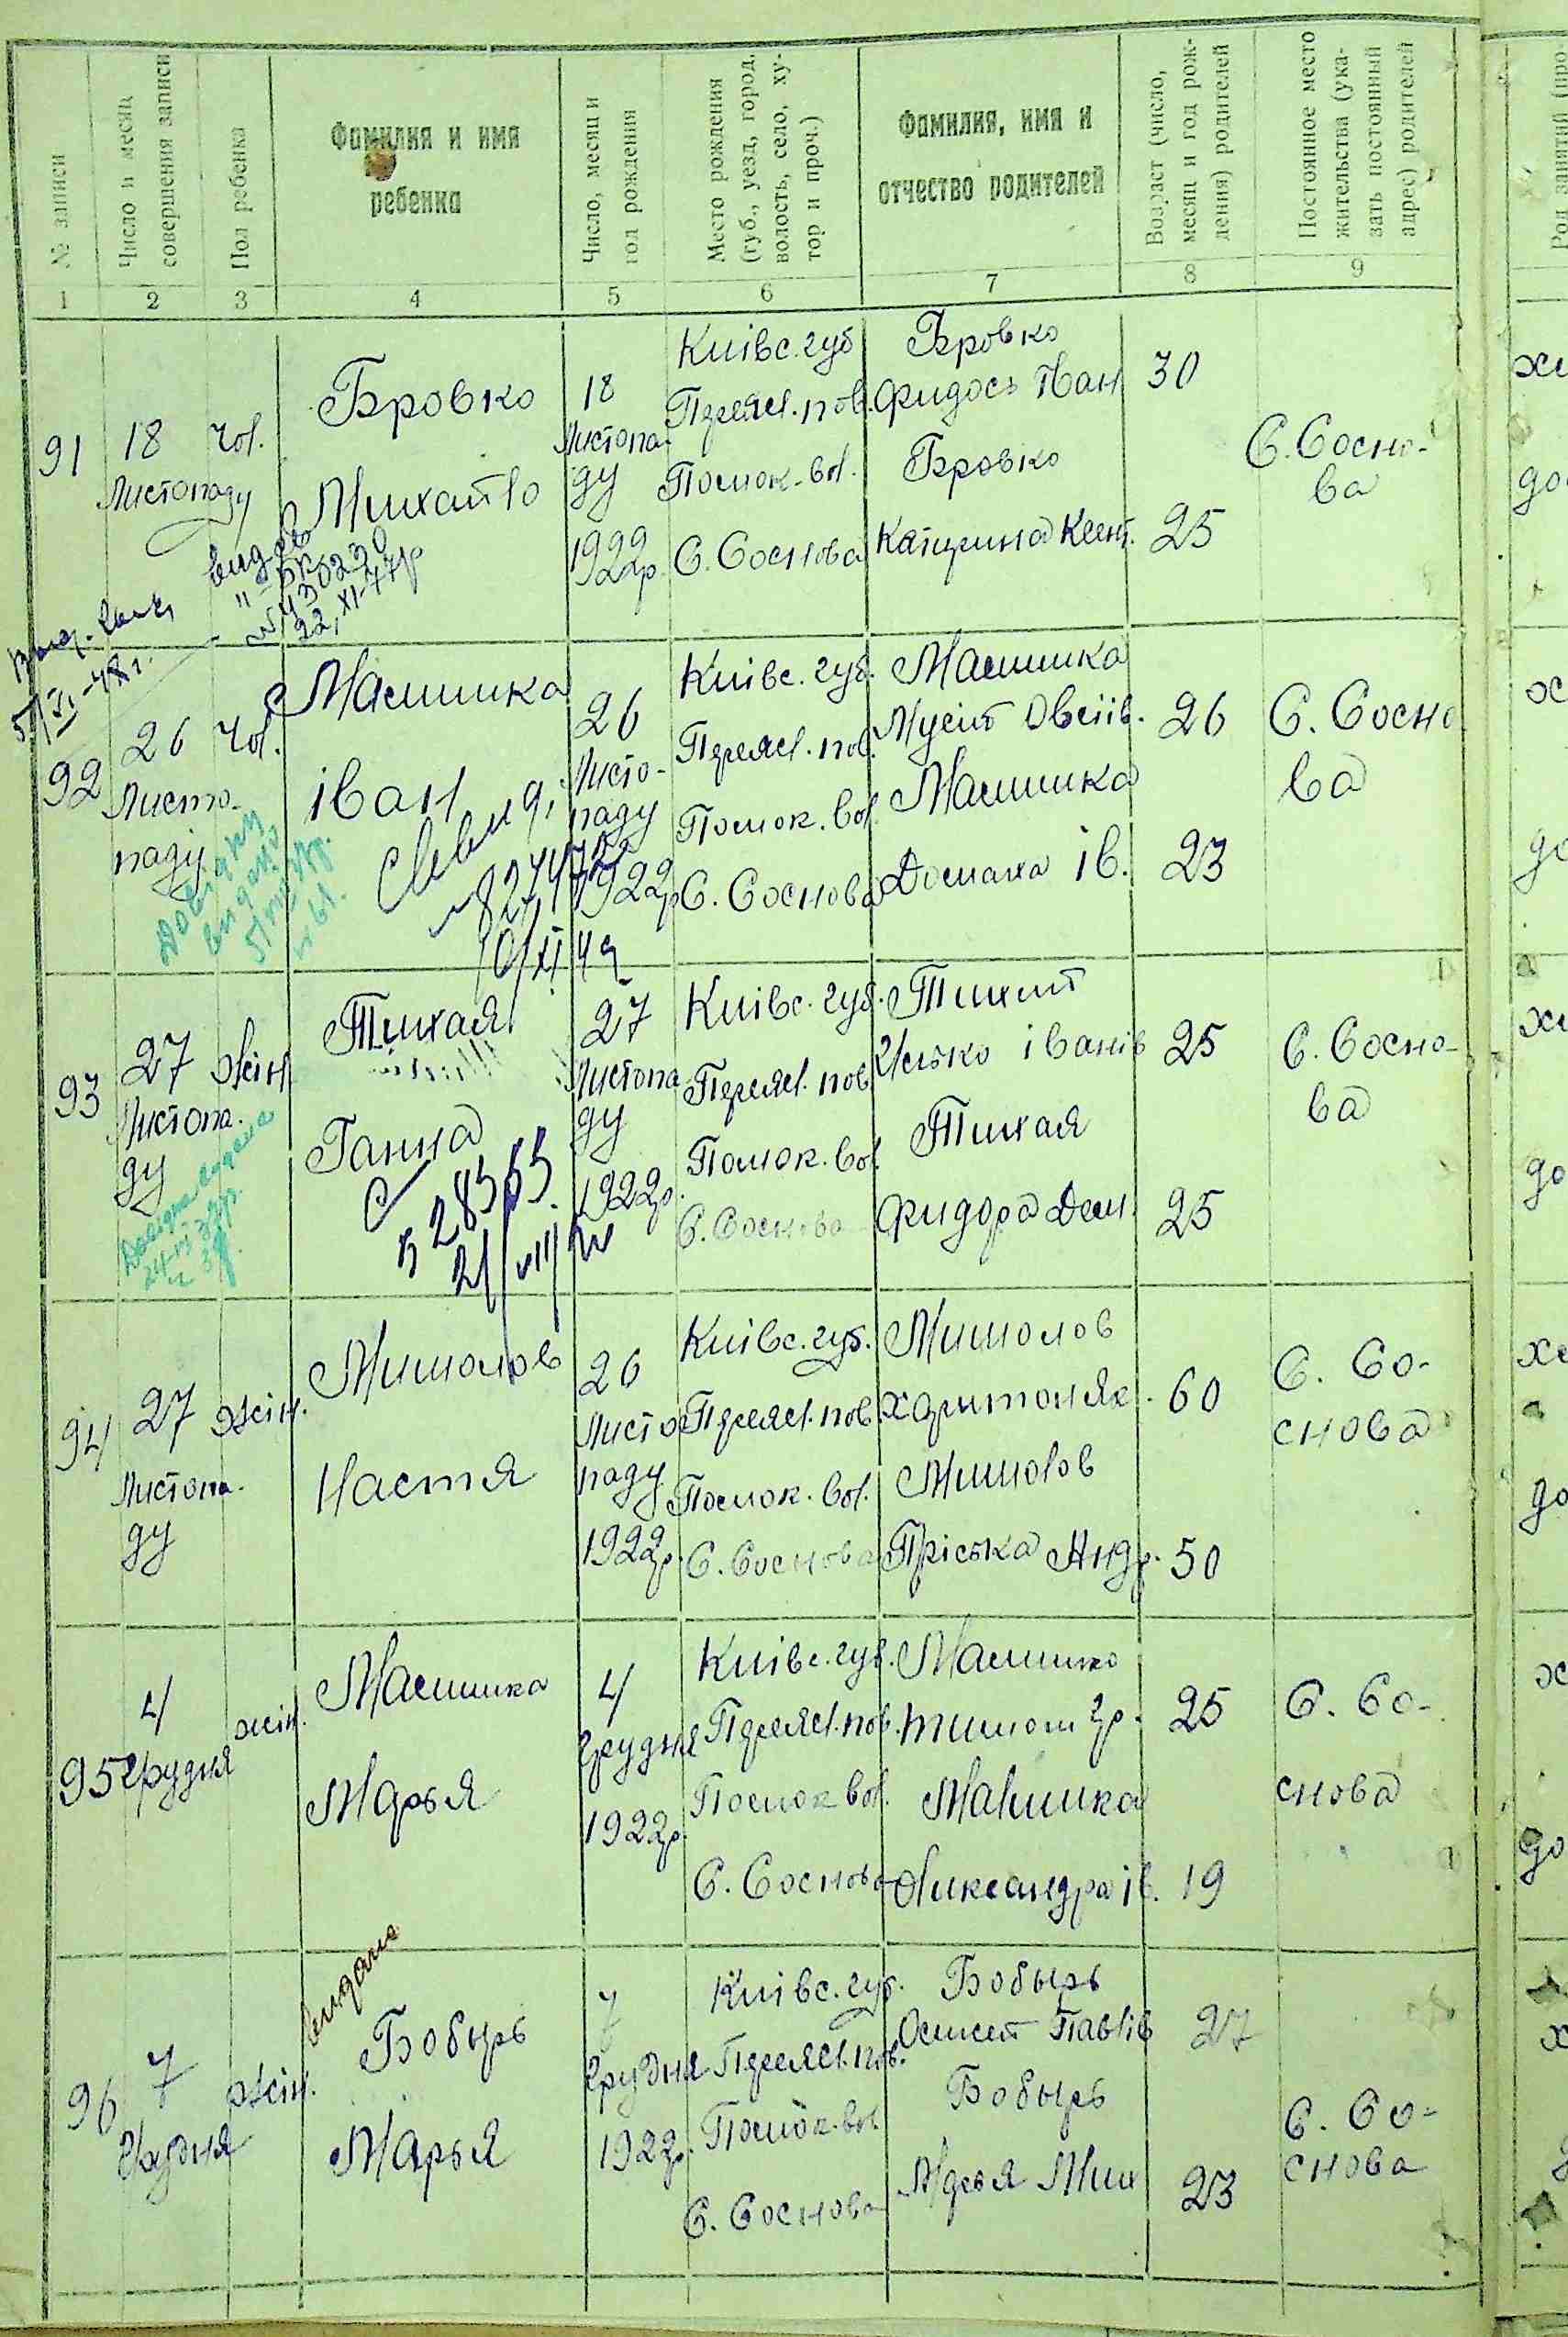 № записи
Число и месяц
совершения записи
Пол ребенка
Фамилия и имя
ребенка
Число, месяц и
год рождения
Место рождения
(губ., уезд, город,
волость, село, ху-
тор и проч.)
Фамилия, имя и
отчество родителей
Возраст (число,
месяц и год рож-
дения) родителей
Постоянное место
жительства (ука-
зать постоянный
адрес) родителей
1
2
3
4
5
6
7
8
9
91
18
Листопаду
чол.
Бровко
Михайло
18
Листопа-
ду
1922р.
Київс. губ
Переясл. пов.
Помок. вол.
С. Соснова
Бровко
Фидось Іван
Бровко
Катерина Клим.
30
25
С. Сосно-
ва
видано
22, XI-47р
92
26
Листо-
паду
чол.
Масишка
іван
26
Листо-
паду
1922р
Київс. губ.
Переясл. пов.
Помок. вол.
С. Соснова
Масишка
Мусій Овсіів.
Масишка
Домаха ів.
26
23
С. Сосно
ва
93
27
Листопа-
ду
жін
Тихая
Ганна
27
Листопа
ду
1922р.
Київс. губ.
Переясл. пов
Помок. вол.
С. Соснова
Тихий
Исько іванів
Тихая
Фидора Дем.
25
25
С. Сосно-
ва
94
27
Листопа-
ду
жін.
Мишолов
Настя
26
Листо
паду
1922р.
Київс. губ.
Переясл. пов
Помок. вол.
С. Соснова
Мишолов
Харитон Як.
Мишолов
Пріська Андр.
60
50
С. Со-
снова
95
4
грудня
жін.
Масишка
Марья
4
грудня
1922р.
Київс. губ.
Переясл. пов.
Помок вол.
С. Соснова
Масишка
Тимош гр.
Масишка
Олександра ів.
25
19
С. Со-
снова
96
7
грудня
жін.
видано
Бобырь
Марья
7
грудня
1922р.
Київс. губ.
Переясл. пов.
Помок. вол.
С. Соснова
Бобырь
Павлів
Бобырь
Марья Мих
27
23
С. Со-
снова